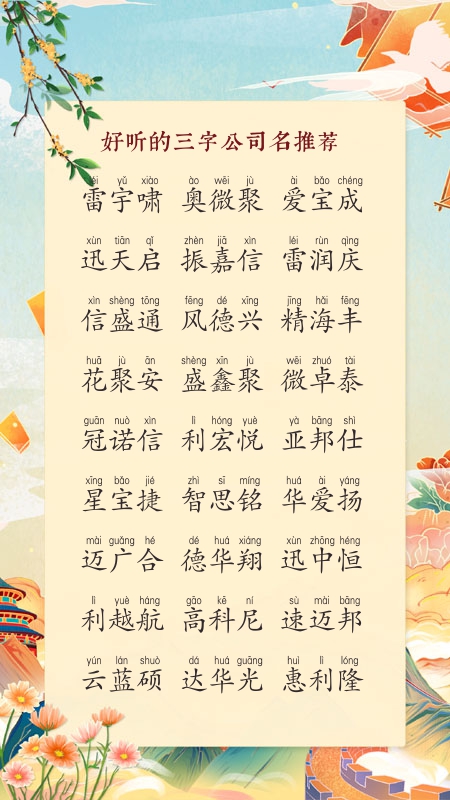 好听的三字公司名推荐
léi yǔ xiào ào wēi jù ài bǎo chéng
雷宇啸 奥微聚 爱宝成
xùn tiān qǐ zhèn jiā xìn léi rùn qìng
迅天启 振嘉信 雷润庆
xìn shèng tōng fēng dé xīng jīng hǎi fēng
信盛通 风德兴 精海丰
huā jù ān shèng xīn jù wēi zhuó tài
花聚安 盛鑫聚 微卓泰
guān nuò xìn lì hóng yuè yà bāng shì
冠诺信 利宏悦 亚邦仕
xīng bǎo jié zhì sī míng huá ài yáng
星宝捷 智思铭 华爱扬
mài guǎng hé dé huá xiáng xùn zhōng héng
迈广合 德华翔 迅中恒
lì yuè háng gāo kē ní sù mài bāng
利越航 高科尼 速迈邦
yún lán shuò dá huá guāng huì lì lóng
云蓝硕 达华光 惠利隆